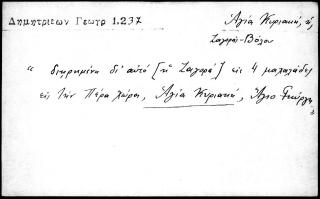 Δημητριεων Γεωγρ 1.237
Ἁγία Κυριακή, ἡ
Ζαγορᾶς-Βόλου
" διῃρημένη δι' αὐτό [ἡ Ζαγορά] εἰς 4 μαχαλάδες
εἰς τὴν Πέρα Χώραν, Ἁγία Κυριακή, Ἅγιο Γεώργη,